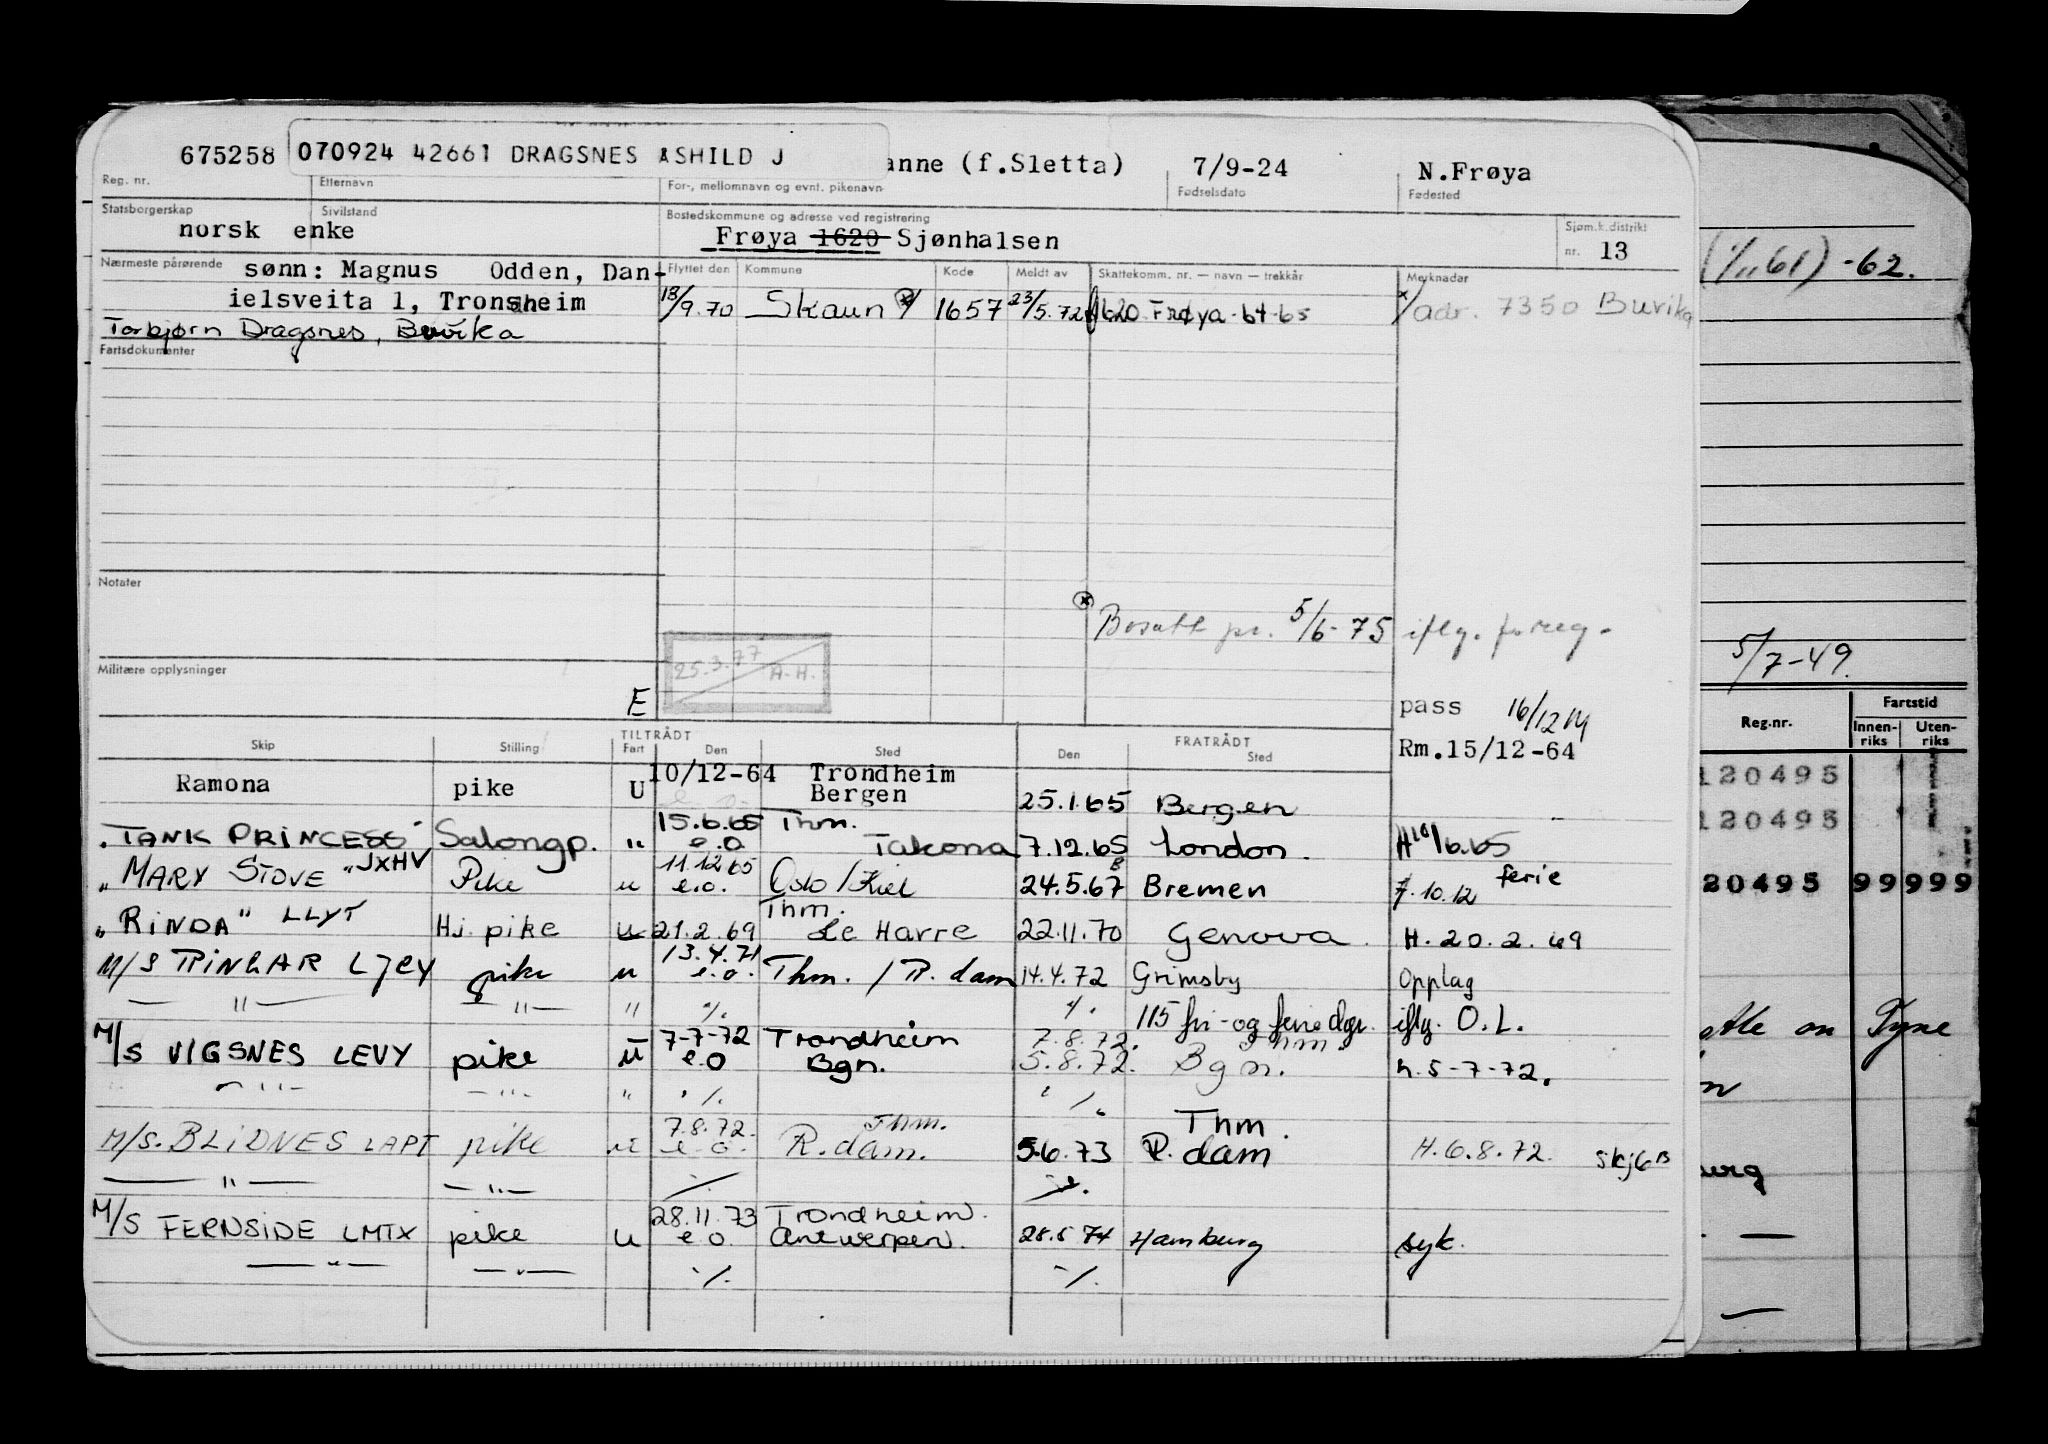 675258 070924 42661 DRAGSNES ASHILD J anne (f.Sletta) 7/9-24 N.Frøya
Reg. nr. Etternavn For-, mellomnavn og evnt. pikenavn Fødselsdato Fødested
Statsborgerskap Sivilstand Bostedskommune og adresse ved registrering Sjøm.k.distrikt
norsk enke Frøya 1620 Sjønhalsen nr. 13
Nærmeste pårørende sønn: Magnus Odden, Dan- Flyttet den Kommune Kode Meldt av Skattekomm. nr. — navn — trekkår Merknader
ielsveita 1, Trondheim 13/9.70 Skaun 1657 23/5.72 1620 Frøya-64-65 x/adr. 7350 Buvika
Torbjørn Dragsnes, Buvika
Fartsdokumenter
(1/11 61) -62.
Notater
Bosatt pr. 5/6-75 iflg. foreg.
25.3.77 A.H.
5/7-49.
Militære opplysninger
E
pass 16/12
Rm.15/12-64
Reg.nr. Fartstid
Innen-riks Uten-riks
Skip Stilling TILTRÅDT Fart Den Sted FRATRÅDT Den Sted
Ramona pike U 10/12-64 Trondheim
Bergen 25.1.65 Bergen
120495
„TANK PRINCESS" Salongp. " 15.6.65 Thm.
e.o Takoma 7.12.65 London. H 10/6.65
120495
„MARY STOVE" JXHV Pike u 11.12.65
e.o. Oslo/Kiel 24.5.67 Bremen 7.10.12 ferie
20495 99999
„RINDA" LLYT Hj. pike u 21.2.69 Thm.
Le Havre 22.11.70 Genova. H. 20.2.69
M/S RINGAR LJCY pike u 13.4.71
e.o. Thm. / R.dam 14.4.72 Grimsby Opplag
— " — — " — " ·/. ·/. 115 fri-og feriedgr. iflg. O.L.
M/S VIGSNES LEVY pike u 7-7-72 Trondheim 7.8.72. Thm
e.o Bgn. 5.8.72. Bgn. h.5-7-72.
— " — — " — " ·/. ·/.
M/S. BLIDNES LAPT pike u 7.8.72. Thm. Thm.
e.o. R.dam. 5.6.73 R.dam H.6.8.72. skj6B
— " — — " — ·/. ·/.
M/S FERNSIDE LMTX pike u 28.11.73 Trondheim.
e.o. Antwerpen. 28.5 74 Hamburg syk.
— " — — " — ·/. ·/.
on Tyne